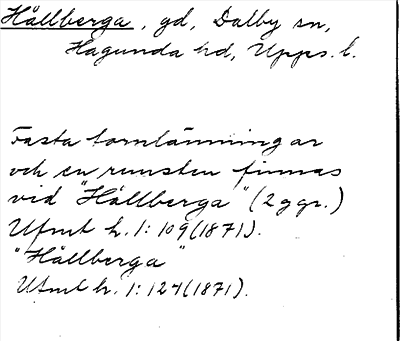 Hållberga, gd, Dalby sn,
Hagunda hd, Upps. l.
Fasta fornlämningar
och en runsten finnas
vid "Hållberga" (2 ggr.)
Ufmt h. 1: 109 (1871).
"Hållberga"
Ufmt h. 1: 124 (1871).